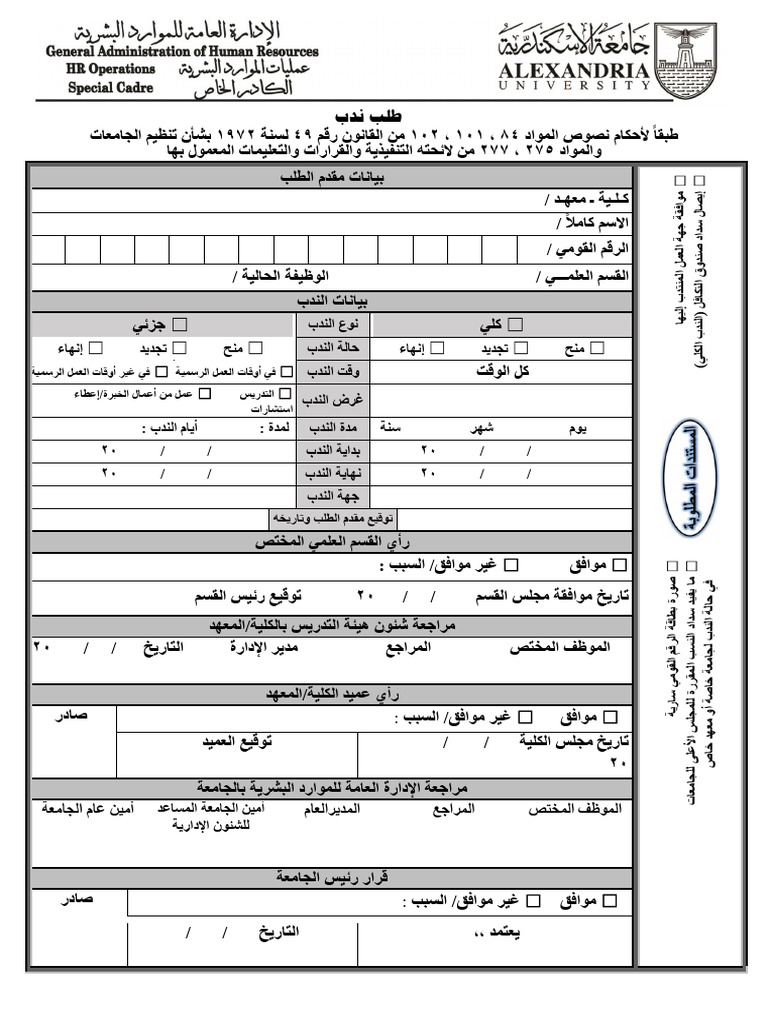 الإدارة العامة للموارد البشرية
General Administration of Human Resources
HR Operations عمليات الموارد البشرية
Special Cadre الكادر الخاص
جامعة الإسكندرية
ALEXANDRIA
UNIVERSITY
طلب ندب
طبقاً لأحكام نصوص المواد ٨٤ ، ١٠١ ، ١٠٢ من القانون رقم ٤٩ لسنة ١٩٧٢ بشأن تنظيم الجامعات
والمواد ٢٧٥ ، ٢٧٧ من لائحته التنفيذية والقرارات والتعليمات المعمول بها
بيانات مقدم الطلب
كـلـيـة ـ معهـد /
الاسم كاملاً /
الرقم القومي /
القسم العلمـــي / الوظيفة الحالية /
بيانات الندب
□ كلي نوع الندب □ جزئي
□ منح □ تجديد □ إنهاء حالة الندب □ منح □ تجديد □ إنهاء
كل الوقت وقت الندب □ في أوقات العمل الرسمية □ في غير أوقات العمل الرسمية
غرض الندب □ التدريس □ عمل من أعمال الخبرة/إعطاء
استشارات
يوم شهر سنة مدة الندب لمدة : أيام الندب :
/ / ٢٠ بداية الندب / / ٢٠
/ / ٢٠ نهاية الندب / / ٢٠
جهة الندب
توقيع مقدم الطلب وتاريخه
رأي القسم العلمي المختص
□ موافق □ غير موافق/ السبب :
تاريخ موافقة مجلس القسم / / ٢٠ توقيع رئيس القسم
مراجعة شئون هيئة التدريس بالكلية/المعهد
الموظف المختص المراجع مدير الإدارة التاريخ / / ٢٠
رأي عميد الكلية/المعهد
□ موافق □ غير موافق/ السبب : صادر
تاريخ مجلس الكلية / / توقيع العميد
٢٠
مراجعة الإدارة العامة للموارد البشرية بالجامعة
الموظف المختص المراجع المديرالعام أمين الجامعة المساعد أمين عام الجامعة
للشئون الإدارية
قرار رئيس الجامعة
□ موافق □ غير موافق/ السبب : صادر
يعتمد ،، التاريخ / /
المستندات المطلوبة
□ إيصال سداد صندوق التكافل (الندب الكلي)
□ موافقة جهة العمل المنتدب إليها
□ صورة بطاقة الرقم القومي سارية
□ ما يفيد سداد النسب المقررة للمجلس الأعلى للجامعات
في حالة الندب لجامعة خاصة أو معهد خاص